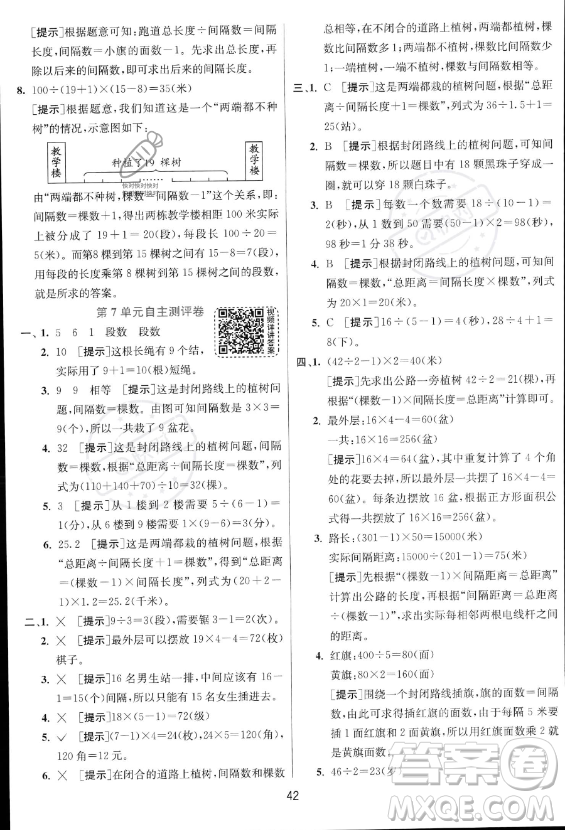 [提示]根据题意可知：跑道总长度÷间隔数=间隔
长度，间隔数=小旗的面数－1。先求出总长度，再
除以后来的间隔数，即可求出后来的间隔长度。
8. 100÷(19+1)×(15-8)=35(米)
[提示]根据题意，我们知道这是一个“两端都不种
树”的情况，示意图如下：
教学楼 种植了19棵树 教学楼
由“两端都不种树，棵数=间隔数－1”这个关系，即：
间隔数=棵数+1，得出两栋教学楼相距 100 米实际
上被分成了 19+1=20(段)，每段的长度是 100÷20
=5(米)。而第8棵到第 15 棵树之间有15－8=7(段)，
用每段的长度乘第8棵树到第 15 棵树之间的段数，
就是所求的答案。
第 7 单元自主测评卷
视频详讲答案
一、1. 5 6 1 段数 段数
2. 10 [提示]这根长绳有 9 个结，即剪 9 次，被剪
成了 9+1=10(根)短绳。
3. 9 9 相等 [提示]这是封闭路线上的植树问
题，间隔数=棵数，由图可知间隔数是 3×3=
9(个)，所以一共栽了 9 盆花。
4. 32 [提示]这是封闭路线上的植树问题，间隔
数=棵数，根据“总距离÷间隔长度=棵数”，列
式为(110+140+70)÷10=32(棵)。
5. 3 [提示]从 1 楼到 2 楼需要 5÷(6-1)=
1(分)，从 6 楼到 9 楼需要 1×(9-6)=3(分)。
6. 25.2 [提示]这是两端都栽的植树问题，根据
“总距离÷间隔长度=间隔数”得到“总距离=
(棵数－1)×间隔长度”，列式为(20+2-
1)×1.2=25.2(千米)。
二、1. × [提示]锯成 3 段，需要锯 3-1=2(次)。
2. × [提示]最外层可以摆放 19×4-4=72(枚)
棋子。
3. × [提示]16 名男生站一排，中间有 16-1=
15(个)间隔，所以有 15 名女生插进去。
4. × [提示]18×(5-1)=72(秒)
5. ✓ [提示](7-1)×4=24(米)，24÷2=12(米)，
120÷12=10(秒)。
6. × [提示]在闭合的道路上植树，间隔数和棵数
总相等。在不闭合的道路上植树，两端都植树，棵
数比间隔数多1；两端都不植树，棵数比间隔数少
1；一端植树、一端不植树，棵数与间隔数相等。
三、1. C [提示]这是两端都栽的植树问题，根据“总距
离÷间隔长度+1=棵数”，列式为 36÷1.5+1=
25(站)。
2. B [提示]根据封闭路线上的植树问题，可知间
隔数=棵数，圆形中穿了 18 颗黑珠子应有 18 个
间隔，可以穿 18 颗白珠子。
3. B [提示]每数一个数需要 18÷(10-1)=
2(秒)，从 1 数到 50 需要 2×(50-1)=98(秒)，
98<100。
4. B [提示]根据封闭路线上的植树问题，可知间
隔数=棵数，根据“总距离=棵数×间隔长度”，列
式为 20×1=20(米)。
5. C [提示]16÷(5-1)=4(次)，8÷4=2(秒)。
四、1. (42÷2-1)×2=40(米)
[提示]先求出公路一旁植树 42÷2=21(棵)，再
根据“总距离=(棵数－1)×间隔长度”计算即可。
2. 最外层：16×4-4=60(盆)
一共：16×16=256(盆)
[提示]16×4=64(盆)，其中重复计算了 4 个角
处的花要去掉，所以最外层一共摆放了 64-4=
60(盆)。每条边摆放 16 盆，根据正方形面积公
式得出一共摆放 16×16=256(盆)。
3. 路长：(301-1)×50=15000(米)
实际间隔距离：15000÷(201-1)=75(米)
[提示]先根据“(棵数－1)×间隔距离=总距离”
计算出公路的长度，再根据“间隔距离=总距离
÷(棵数－1)”，求出实际每相邻两根电线杆之间
的距离。
4. 红旗：400÷5=80(面)
黄旗：80×2=160(面)
[提示]围绕一个封闭路线插旗，插红旗的面数=
间隔数，因为每两面红旗之间插 2 面黄旗，即一
个间隔 2 面黄旗，所以用红旗的面数乘 2 就可以
求出黄旗面数。
42
答案圈
MXQE.COM